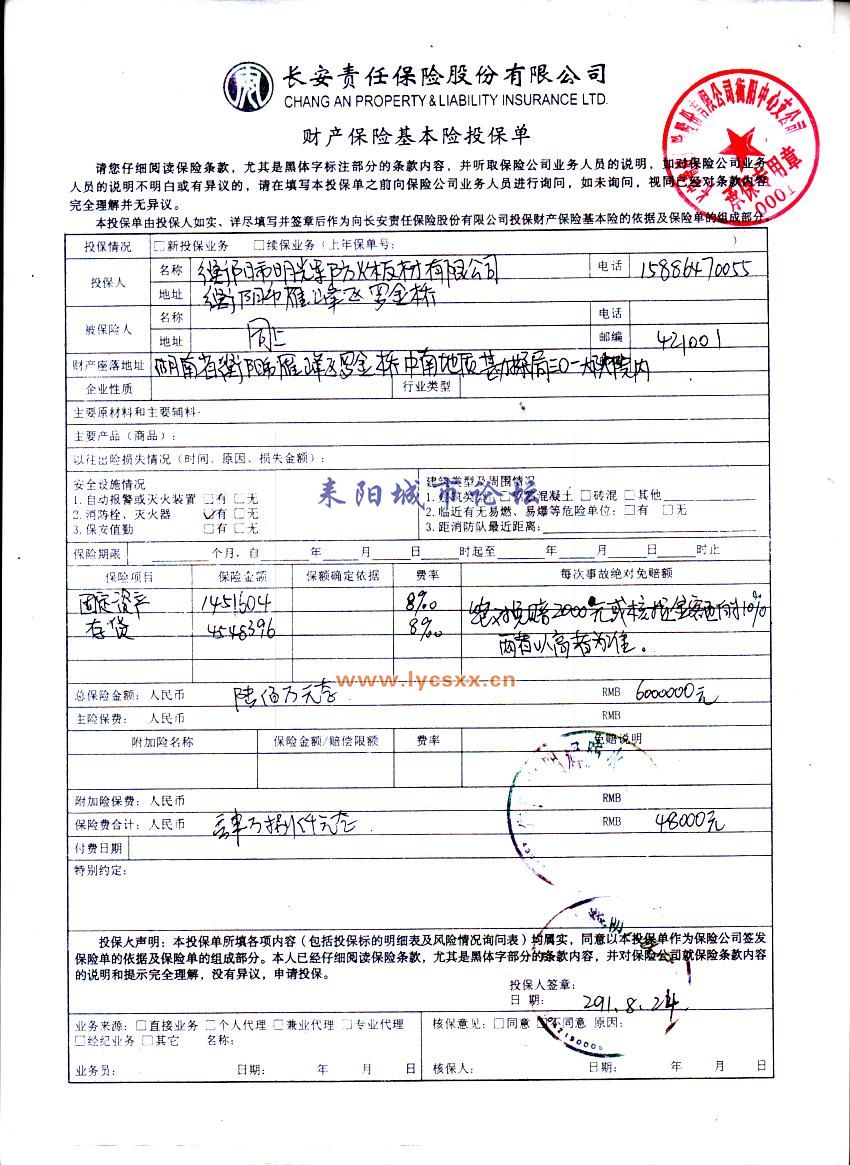 长安责任保险股份有限公司
CHANG AN PROPERTY & LIABILITY INSURANCE LTD.
财产保险基本险投保单
请您仔细阅读保险条款，尤其是黑体字标注部分的条款内容，并听取保险公司业务人员的说明，如对保险公司业务
人员的说明不明白或有异议的，请在填写本投保单之前向保险公司业务人员进行询问，如未询问，视同已经对条款内容
完全理解并无异议。
本投保单由投保人如实、详尽填写并签章后作为向长安责任保险股份有限公司投保财产保险基本险的依据及保险单的组成部分。
有限公司衡阳中心支公司
承保专用章
0001
投保情况 □新投保业务 □续保业务（上年保单号： ）
投保人 名称 衡阳市明光车防火板材有限公司 电话 15886470055
地址 衡阳市雁峰区罗金桥
被保险人 名称 同上 电话
地址 邮编 421001
财产座落地址 湖南省衡阳市雁峰区罗金桥中南地质勘探局三0一大队院内
企业性质 行业类型
主要原材料和主要辅料：
主要产品（商品）：
以往出险损失情况（时间、原因、损失金额）：
安全设施情况 建筑类型及周围情况
1. 自动报警或灭火装置 □有 □无 1. 混凝土 □砖混 □其他
2. 消防栓、灭火器 ☑有 □无 2. 临近有无易燃、易爆等危险单位：□有 □无
3. 保安值勤 □有 □无 3. 距消防队最近距离：
耒阳城市论坛
保险期限 个月，自 年 月 日 时起至 年 月 日 时止
保险项目 保险金额 保额确定依据 费率 每次事故绝对免赔额
固定资产 1451604 8‰ 绝对免赔2000元或核损金额的10%
存货 4548396 8‰ 两者以高者为准。
www.lycsxx.cn
总保险金额：人民币 陆佰万元整 RMB 6000000元
主险保费：人民币 RMB
附加险名称 保险金额/赔偿限额 费率 免赔说明
附加险保费：人民币 RMB
保险费合计：人民币 肆万捌仟元整 RMB 48000元
付费日期
特别约定：
投保人声明：本投保单所填各项内容（包括投保标的明细表及风险情况询问表）均属实，同意以本投保单作为保险公司签发
保险单的依据及保险单的组成部分。本人已经仔细阅读保险条款，尤其是黑体字部分的条款内容，并对保险公司就保险条款内容
的说明和提示完全理解，没有异议，申请投保。
投保人签章：
日 期： 8.24
业务来源：□直接业务 □个人代理 □兼业代理 □专业代理 核保意见：□同意 □不同意 原因：
□经纪业务 □其它 名称：
业务员： 日期： 年 月 日 核保人： 日期： 年 月 日